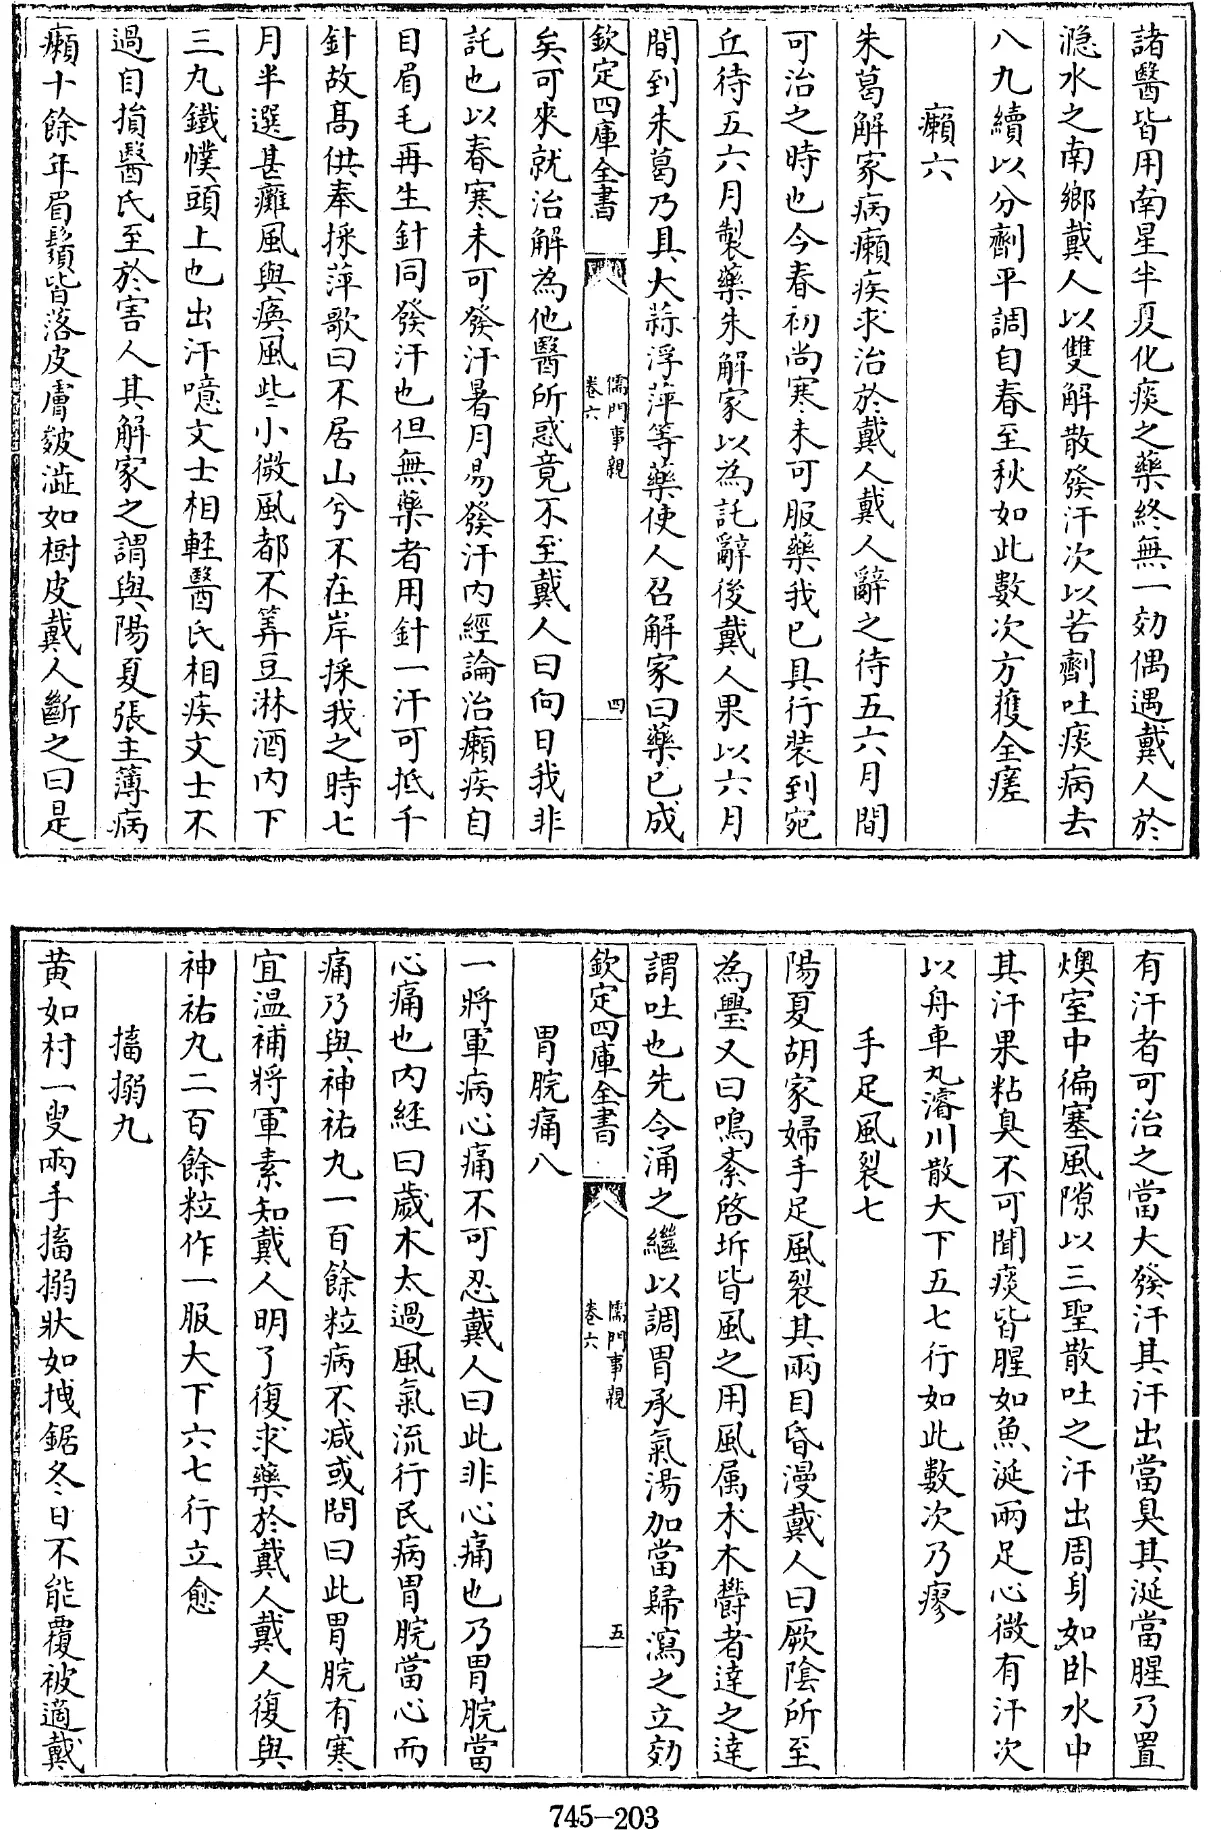 諸醫皆用南星半夏化痰之藥終無一効偶遇戴人於
㶏水之南鄉戴人以雙解散發汗次以苦劑吐痰病去
八九續以分劑平調自春至秋如此數次方獲全瘥
癩六
朱葛解家病癩疾求治於戴人戴人辭之待五六月間
可治之時也今春初尚寒未可服藥我已具行裝到宛
丘待五六月製藥朱解家以為託辭後戴人果以六月
間到朱葛乃具大蒜浮萍等藥使人召解家曰藥已成
欽定四庫全書
儒門事親
卷六
四
矣可來就治解為他醫所惑竟不至戴人曰向日我非
託也以春寒未可發汗暑月易發汗内經論治癩疾自
目眉毛再生針同發汗也但無藥者用針一汗可抵千
針故髙供奉採萍歌曰不居山兮不在岸採我之時七
月半選甚癱風與瘓風些小微風都不算豆淋酒内下
三丸鐵幞頭上也出汗噫文士相輕醫氏相疾文士不
過自損醫氏至於害人其解家之謂與陽夏張主薄病
癩十餘年眉鬚皆落皮膚皴澁如樹皮戴人斷之曰是
有汗者可治之當大發汗其汗出當臭其涎當腥乃置
燠室中徧塞風隙以三聖散吐之汗出周身如卧水中
其汗果粘臭不可聞痰皆腥如魚涎兩足心微有汗次
以舟車丸濬川散大下五七行如此數次乃瘳
手足風裂七
陽夏胡家婦手足風裂其兩目昏漫戴人曰厥隂所至
為璺又曰鳴紊啓坼皆風之用風属木木欝者達之達
謂吐也先令涌之繼以調胃承氣湯加當歸瀉之立効
欽定四庫全書
儒門事親
卷六
五
胃脘痛八
一將軍病心痛不可忍戴人曰此非心痛也乃胃脘當
心痛也内經曰歲木太過風氣流行民病胃脘當心而
痛乃與神祐丸一百餘粒病不减或問曰此胃脘有寒
宜温補將軍素知戴人明了復求藥於戴人戴人復與
神祐丸二百餘粒作一服大下六七行立愈
搐搦九
黄如村一叟兩手搐搦狀如拽鋸冬日不能覆被適戴
745-203